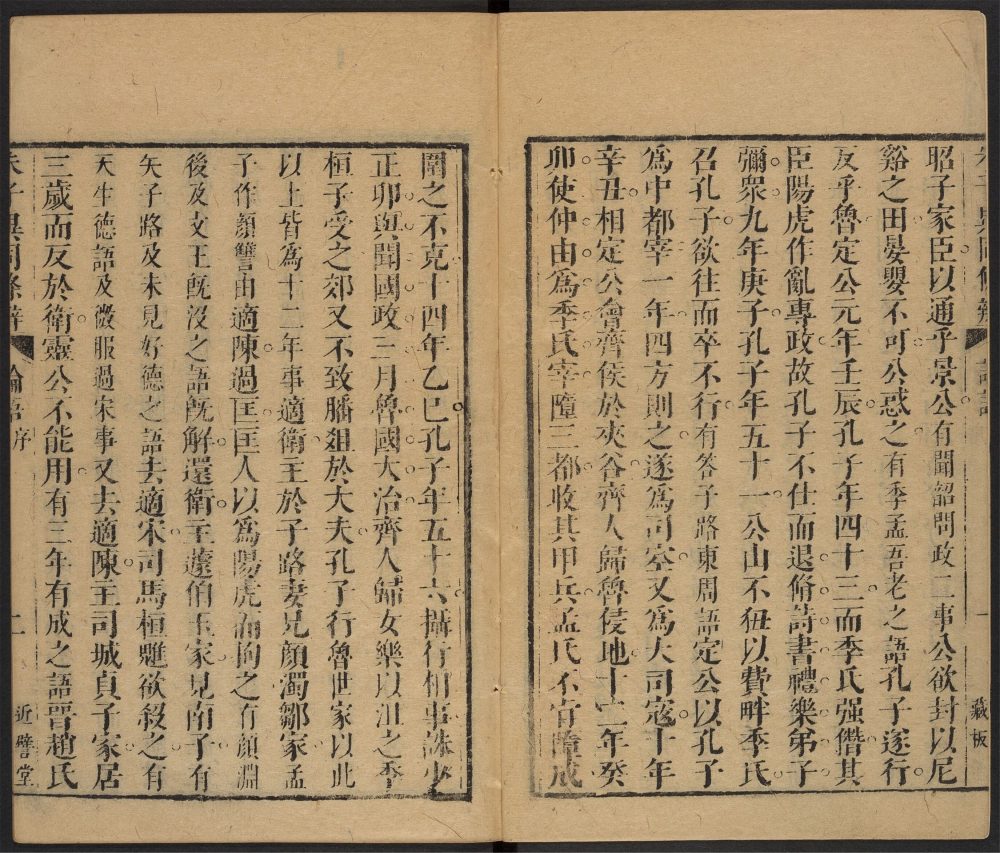 昭子家臣以通乎景公有聞韶問政二事公欲封以尼
谿之田晏嬰不可公惑之有季孟吾老之語孔子遂行
反乎魯定公元年壬辰孔子年四十三而季氏强僭其
臣陽虎作亂專政故孔子不仕而退脩詩書禮樂弟子
彌衆九年庚子孔子年五十一公山不狃以費畔季氏
召孔子欲往而卒不行有答子路東周語定公以孔子
爲中都宰一年四方則之遂爲司空又爲大司寇十年
辛丑相定公會齊侯於夾谷齊人歸魯侵地十二年癸
卯使仲由爲季氏宰隳三都收其甲兵孟氏不肯隳成
藏板
圍之不克十四年乙巳孔子年五十六攝行相事誅少
正卯與聞國政三月魯國大治齊人歸女樂以沮之季
桓子受之郊又不致膰俎於大夫孔子行魯世家以此
以上皆爲十二年事適衛主於子路妻兄顔濁鄒家孟
子作顔讐由適陳過匡匡人以爲陽虎而拘之有顔淵
後及文王旣沒之語旣解還衛主蘧伯玉家見南子有
矢子路及未見好德之語去適宋司馬桓魋欲殺之有
天生德語及微服過宋事又去適陳主司城貞子家居
三歲而反於衛靈公不能用有三年有成之語晉趙氏
論語序
二
近譬堂